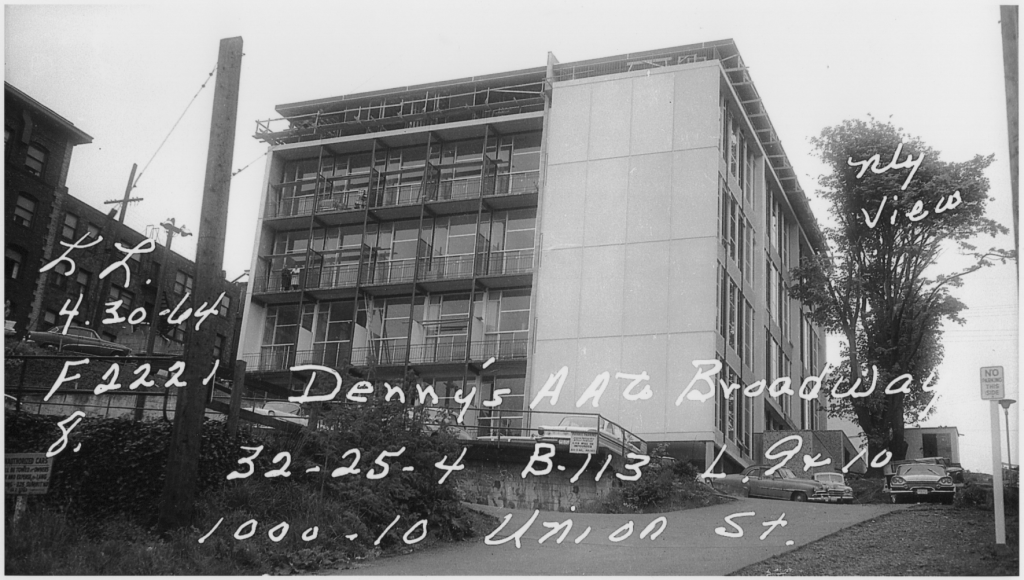 nly
View
L L.
4.30-64
F2221
8.
Denny's A A to Broadway
32-25-4 B-113 L. 9 & 10
1000-10 Union St.
NO
PARKING
THIS
SIDE